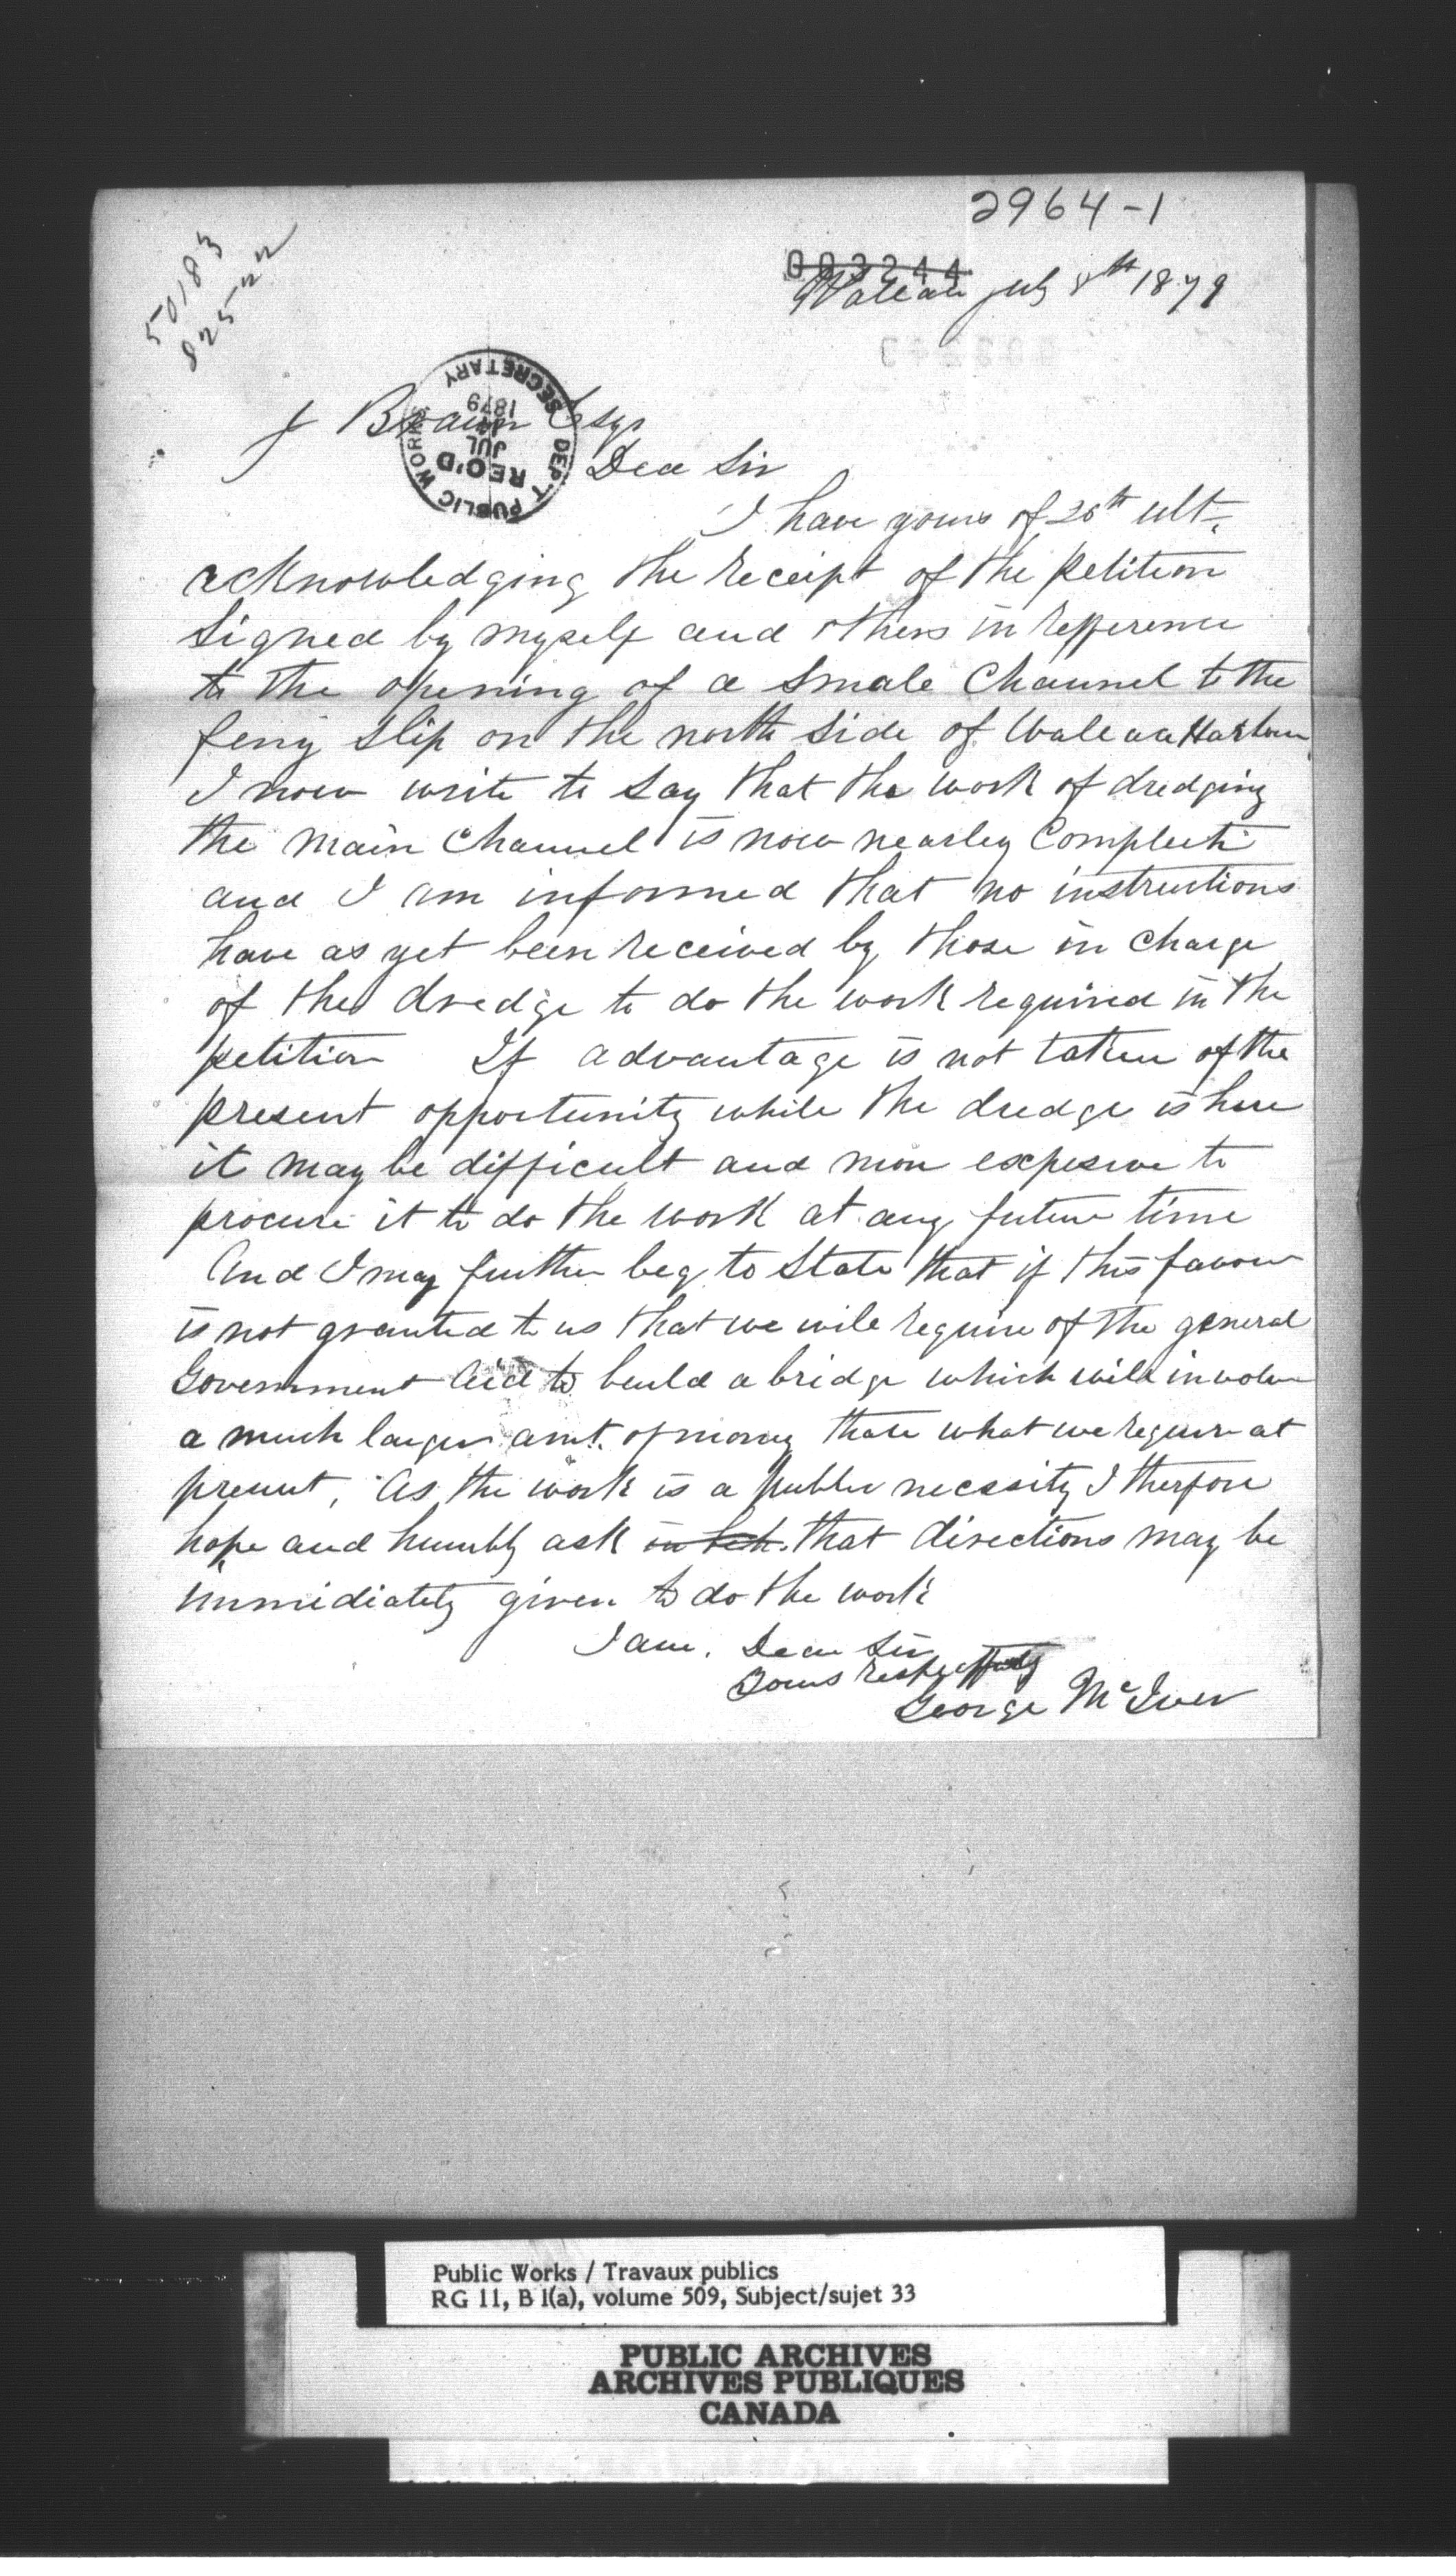 2964-1
50183
82522
003244
Wallace July 8th 1879
PUBLIC WORKS DEPT SECRETARY
REC'D
JUL
1879
J Braun Esqr
Dear Sir
I have yours of 26th ult.
acknowledging the receipt of the petition
signed by myself and others in refference
to the opening of a smale channel to the
ferry slip on the north side of Wallace Harbour
I now write to say that the work of dredging
the main channel is now nearley compleete
and I am informed that no instructions
have as yet been received by those in charge
of the dredge to do the work required in the
petition If advantage is not taken of the
present opportunity while the dredge is here
it may be difficult and more expesive to
procure it to do the work at any future time
And I may further beg to state that if this favour
is not granted to us that we will require of the general
Government aid to beuld a bridge which will involve
a much larger amt. of money than what we require at
present, As the work is a public necessity I therfore
hope and humbly ask that directions may be
immidiately given to do the work
I am. Dear Sir
Yours respectfully
George McIver
Public Works / Travaux publics
RG 11, B 1(a), volume 509, Subject/sujet 33
PUBLIC ARCHIVES
ARCHIVES PUBLIQUES
CANADA